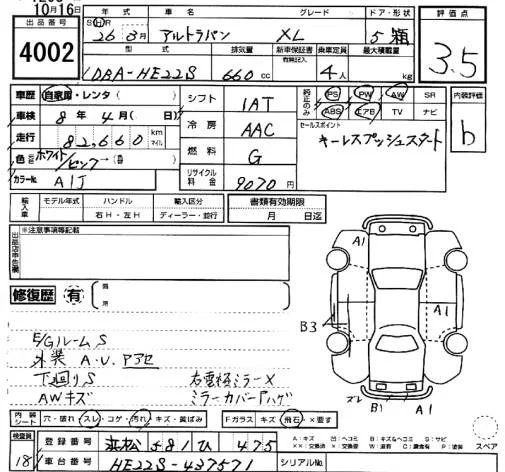 10月16日
出品番号
4002
年式 車名 グレード ドア・形状
SH 26年3月 アルトラパン XL 5ドア
型式 排気量 新車保証書 乗車定員 最大積載量
有無記入
DBA-HE22S 660cc 4人 kg
評価点
3.5
内装評価
b
車歴 自家用・レンタ( )
車検 8年4月( 日)
走行 82,660 km マイル
色 ホワイト/ピンク
カラーNo. A1J
シフト 1AT
冷房 AAC
燃料 G
リサイクル料金 9070円
純正のみ
PS PW AW SR
ABS エアB TV ナビ
セールスポイント
キーレスプッシュスタート
輸入車 モデル年式 ハンドル 輸入区分
右H・左H ディーラー・並行
書類有効期限
月 日迄
出品店申告欄
※注意事項等記載
修復歴 有
箇所
E/Gルーム S
外装 A・U. アアセ
下廻り S
AWキズ
右電格ミラー×
ミラーカバーハゲ
A1
A1
B3
ズレ B1 A1
スペア
内装シート 穴・破れ スレ・コゲ・汚れ・キズ・黄ばみ
Fガラス キズ・飛石・×要す
検査員
18
登録番号 浜松 581 ひ 475
車台番号 HE22S-437571
シリアルNo.